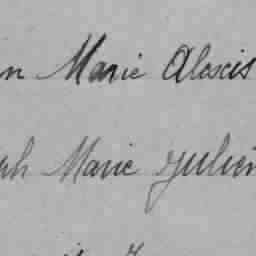 n Marie Alexis
ph Marie Julien